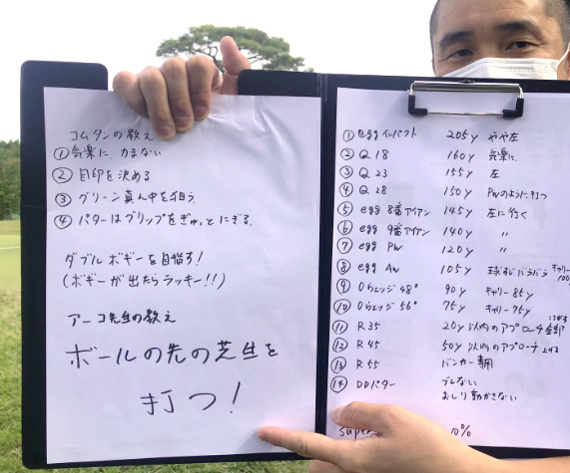 コムタンの教え
① 気楽に、力まない
② 目印を決める
③ グリーン真ん中を狙う
④ パターはグリップをぎゅっとにぎる.
ダブルボギーを目指す!
(ボギーが出たらラッキー!!)
アーコ先生の教え
ボールの先の芝生を
打つ!
① egg インパクト 205y やや左
② Q18 160y 気楽に.
③ Q23 155y 左
④ Q28 150y PWのように打つ
⑤ egg 8番アイアン 145y 左に行く
⑥ egg 9番アイアン 140y 〃
⑦ egg PW 120y 〃
⑧ egg AW 105y 球すじバラバラ キャリー
⑨ ウェッジ 48° 90y キャリー 85y
⑩ ウェッジ 56° 75y キャリー 75y
⑪ R35 20y以内のアプローチ
⑫ R45 50y以内のアプローチ 上げる
⑬ R55 バンカー専用
⑭ DDパター ブレない
おしり動かさない
super 0%